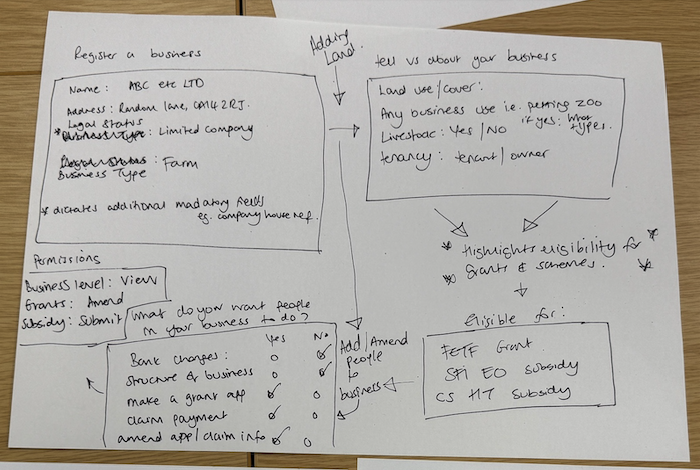 Register a business
Name: ABC etc LTD
Address: Random lane, CA14 2RJ.
Legal Status
* Business Type: Limited company
Legal Status: Farm
Business Type
* dictates additional madatory fields
eg. company house ref.
Adding
Land.
tell us about your business
Land use/cover:
Any business use i.e. petting zoo
if yes: what
types.
Livestock: Yes/No
tenancy: tenant/owner
* Highlights eligibility for *
* grants & schemes. *
Eligible for:
FETF Grant
SFI EO subsidy
CS HT subsidy
Add/Amend
people
to
business
Permissions
Business level: View
Grants: Amend
Subsidy: Submit
What do you want people
in your business to do?
Yes No
Bank changes:
structure of business
make a grant app
claim payment
amend app/claim info